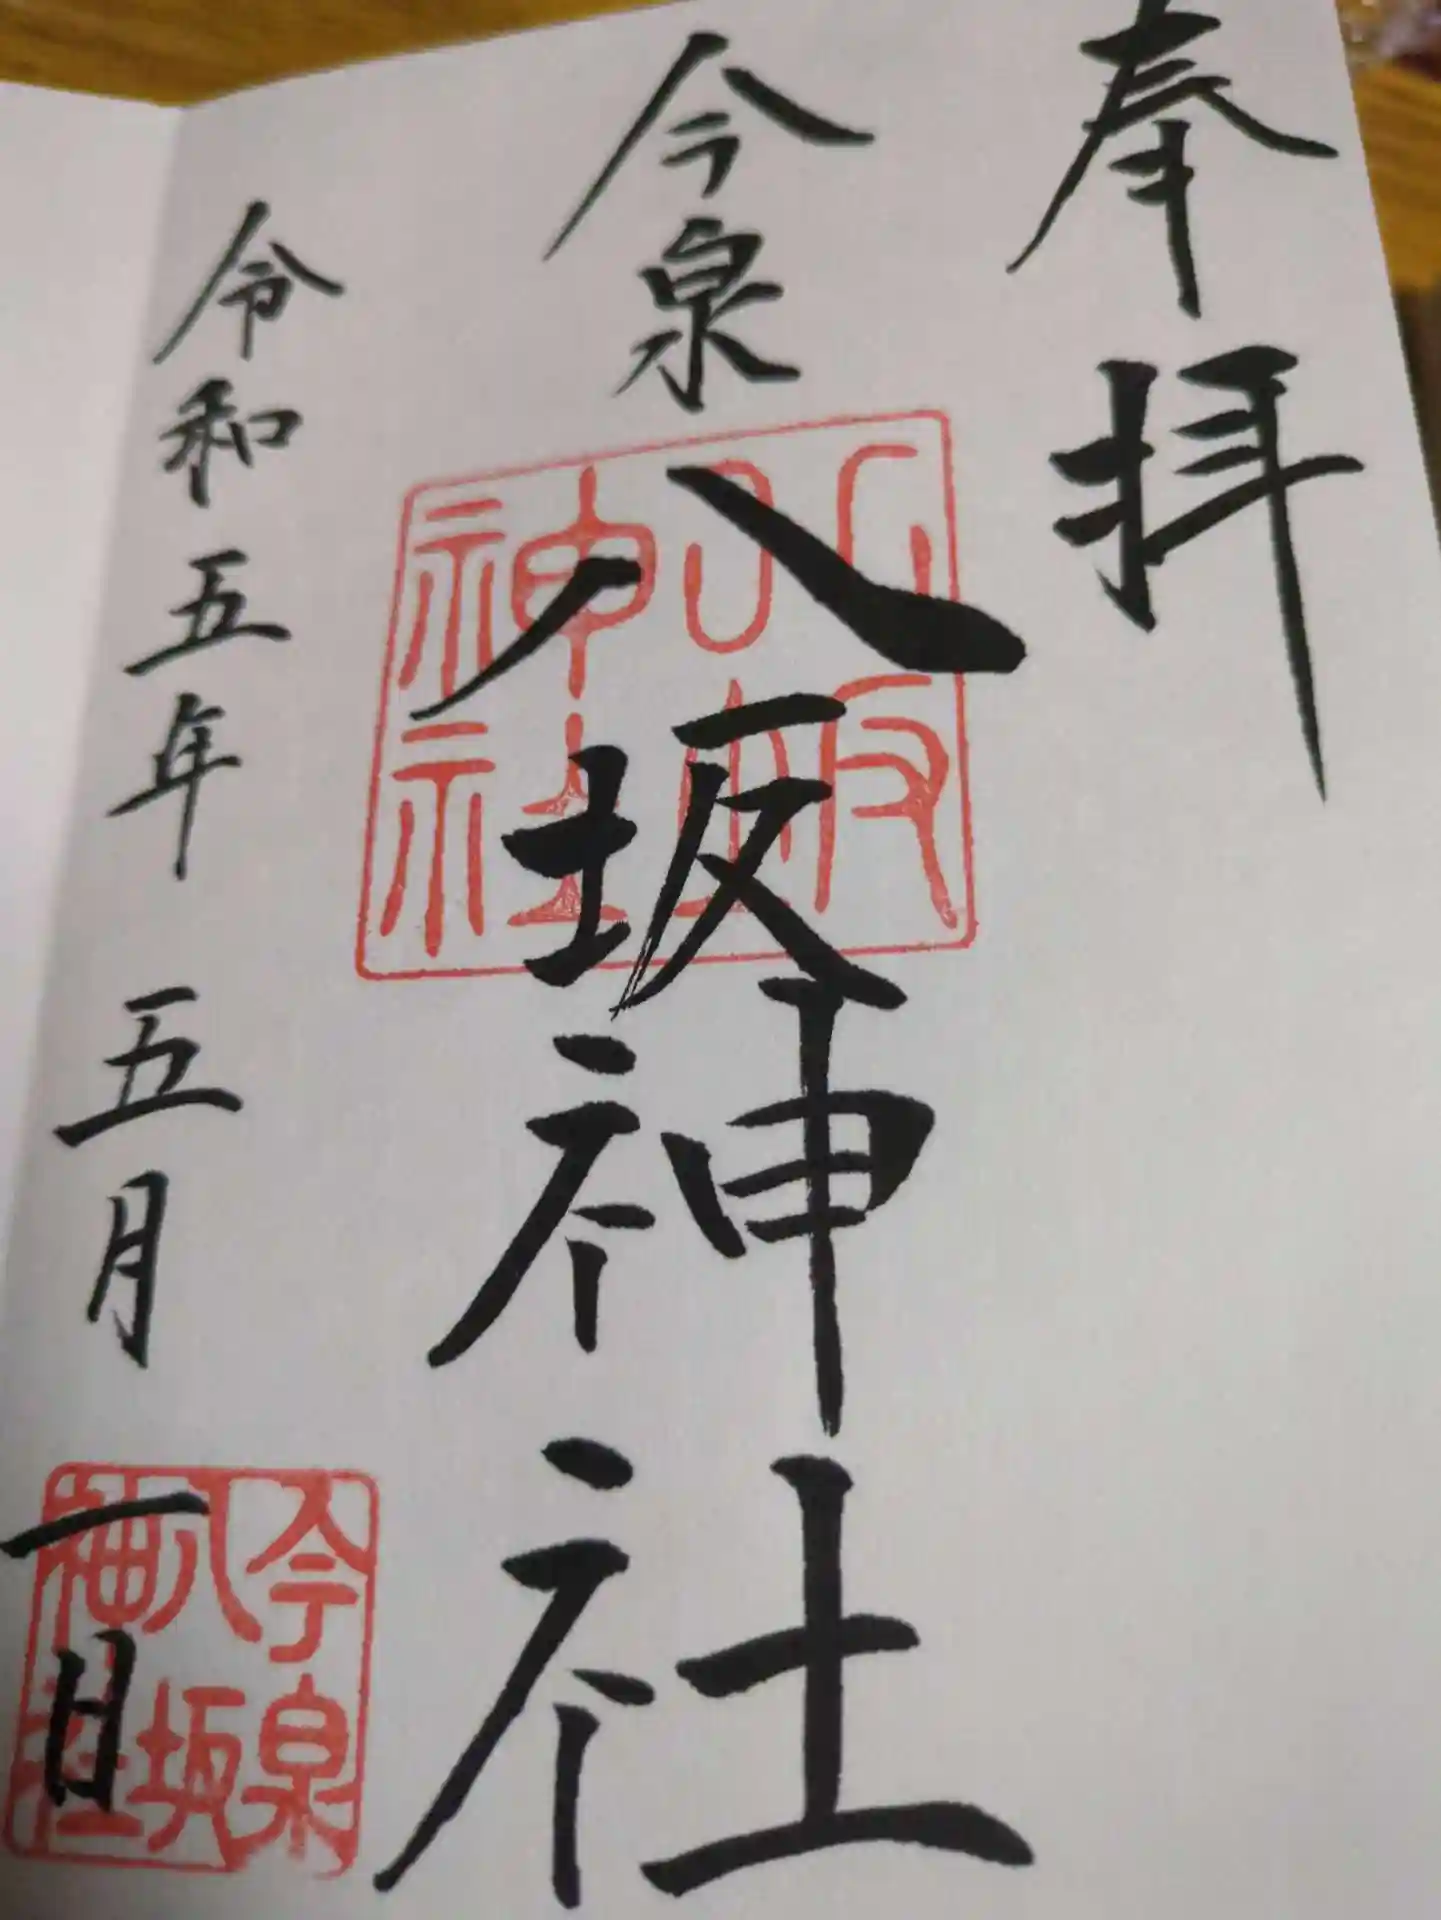 奉拝
今泉
八坂神社
八坂
神社
令和五年 五月一日
今泉
八坂
神社